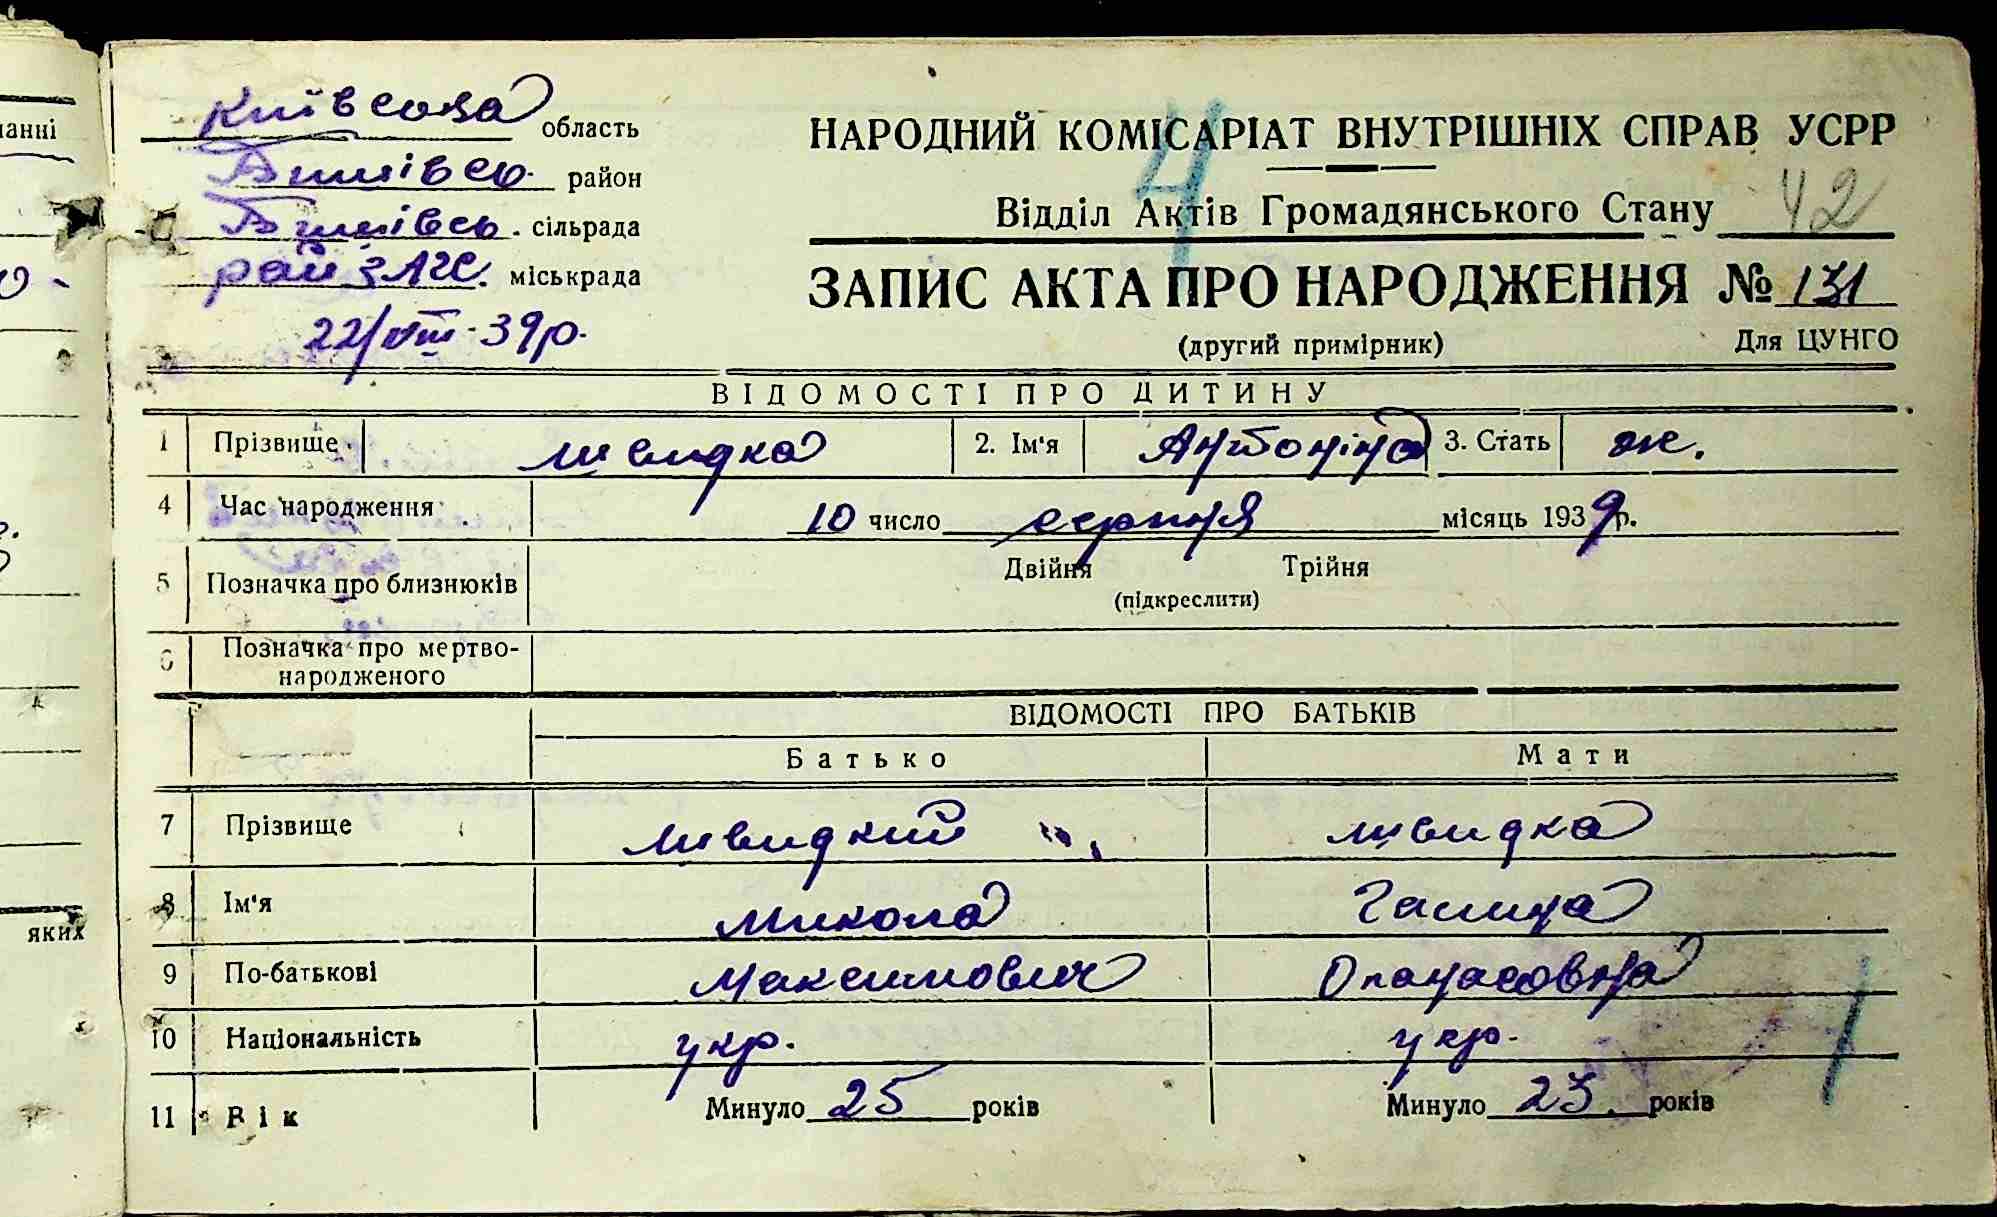 Київська область
район
сільрада
рай ЗАГС. міськрада
22/VIII-39р.
НАРОДНИЙ КОМІСАРІАТ ВНУТРІШНІХ СПРАВ УСРР
4
Відділ Актів Громадянського Стану 42
ЗАПИС АКТА ПРО НАРОДЖЕННЯ № 131
(другий примірник) Для ЦУНГО
ВІДОМОСТІ ПРО ДИТИНУ
1 Прізвище Швидка 2. Ім'я Антоніна 3. Стать ж.
4 Час народження 10 число серпня місяць 1939 р.
5 Позначка про близнюків Двійня Трійня
(підкреслити)
6 Позначка про мертво-
народженого
ВІДОМОСТІ ПРО БАТЬКІВ
Батько Мати
7 Прізвище Швидкий Швидка
8 Ім'я Микола Галина
9 По-батькові Максимович Опанасовна
10 Національність укр. укр.
11 Вік Минуло 25 років Минуло 23 років
яких